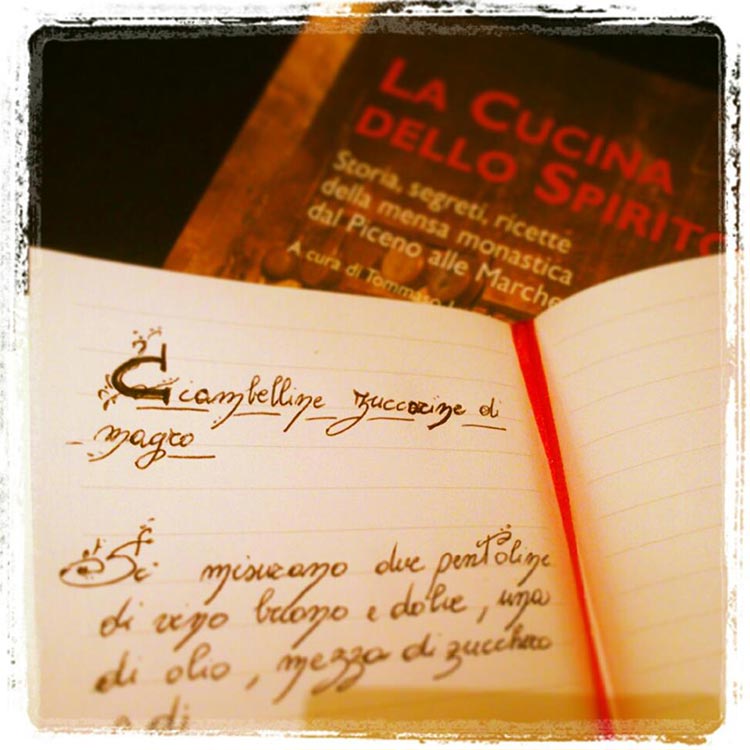 LA CUCINA
DELLO SPIRITO
Storia, segreti, ricette
della mensa monastica
dal Piceno alle Marche
A cura di Tommaso
Ciambelline zuccarine di
magro
Si misurano due pentoline
di vino buono e dolce, una
di olio, mezza di zucchero
e di